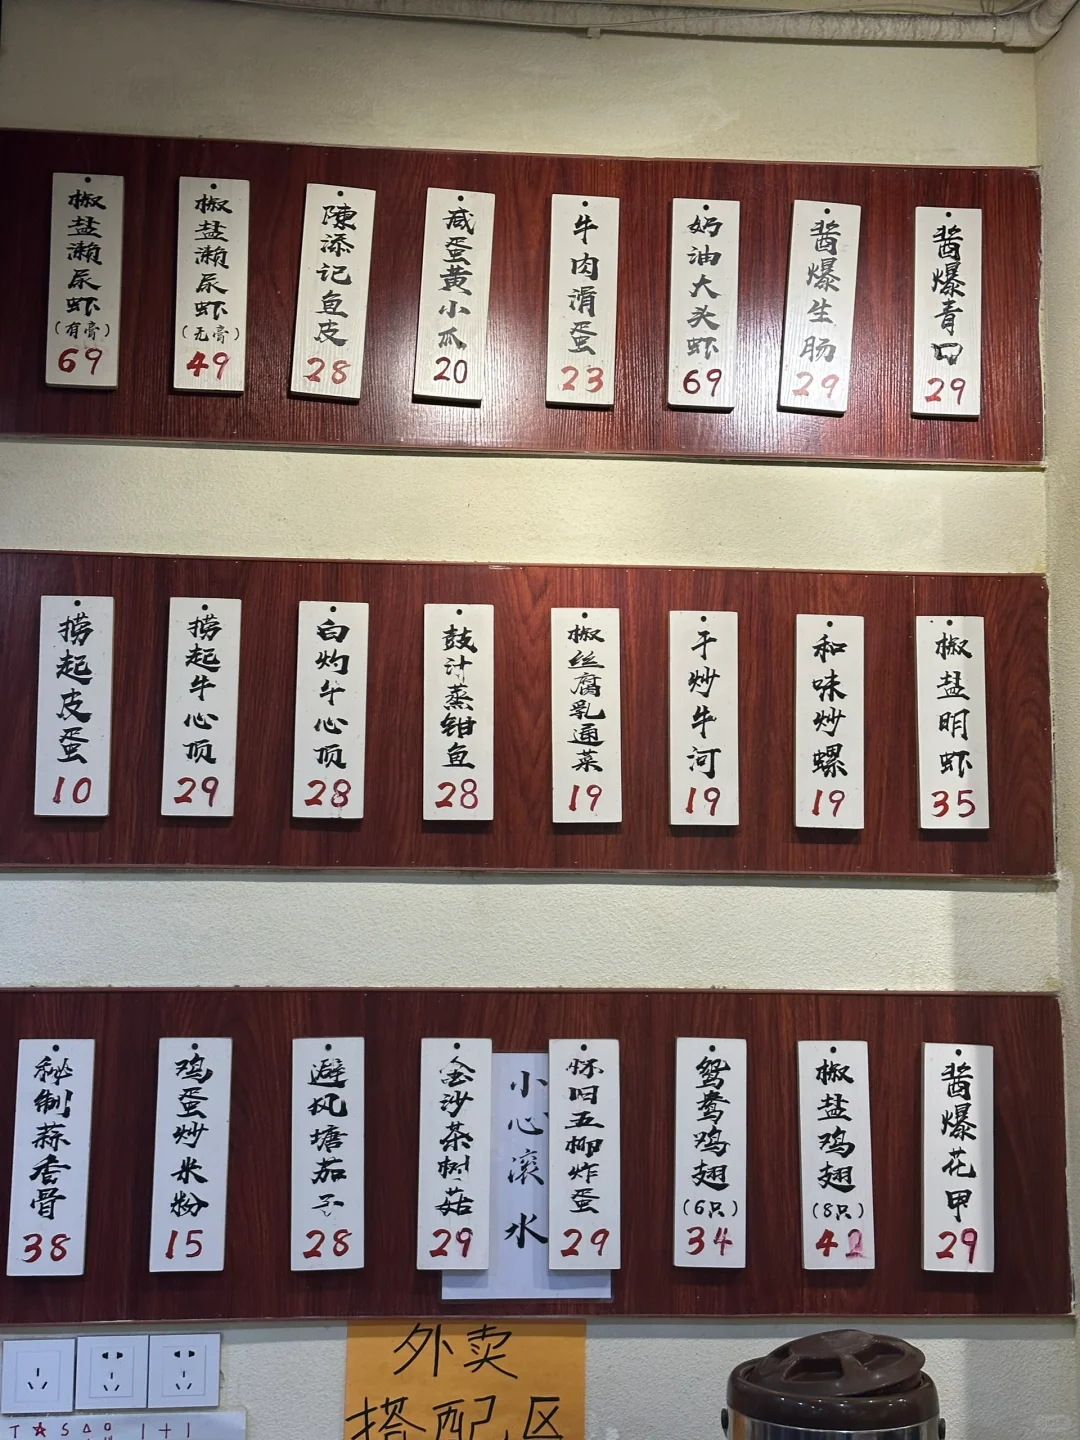 椒盐濑尿虾
（有膏）
69
椒盐濑尿虾
（无膏）
49
陳添记鱼皮
28
咸蛋黄小瓜
20
牛肉滑蛋
23
奶油大头虾
69
酱爆生肠
29
酱爆青口
29
捞起皮蛋
10
捞起牛心顶
29
白灼牛心顶
28
鼓汁蒸钳鱼
28
椒丝腐乳通菜
19
干炒牛河
19
和味炒螺
19
椒盐明虾
35
秘制蒜香骨
38
鸡蛋炒米粉
15
避风塘茄子
28
金沙茶树菇
29
小心滚水
怀旧五柳炸蛋
29
鸳鸯鸡翅
（6只）
34
椒盐鸡翅
（8只）
42
酱爆花甲
29
外卖
搭配区